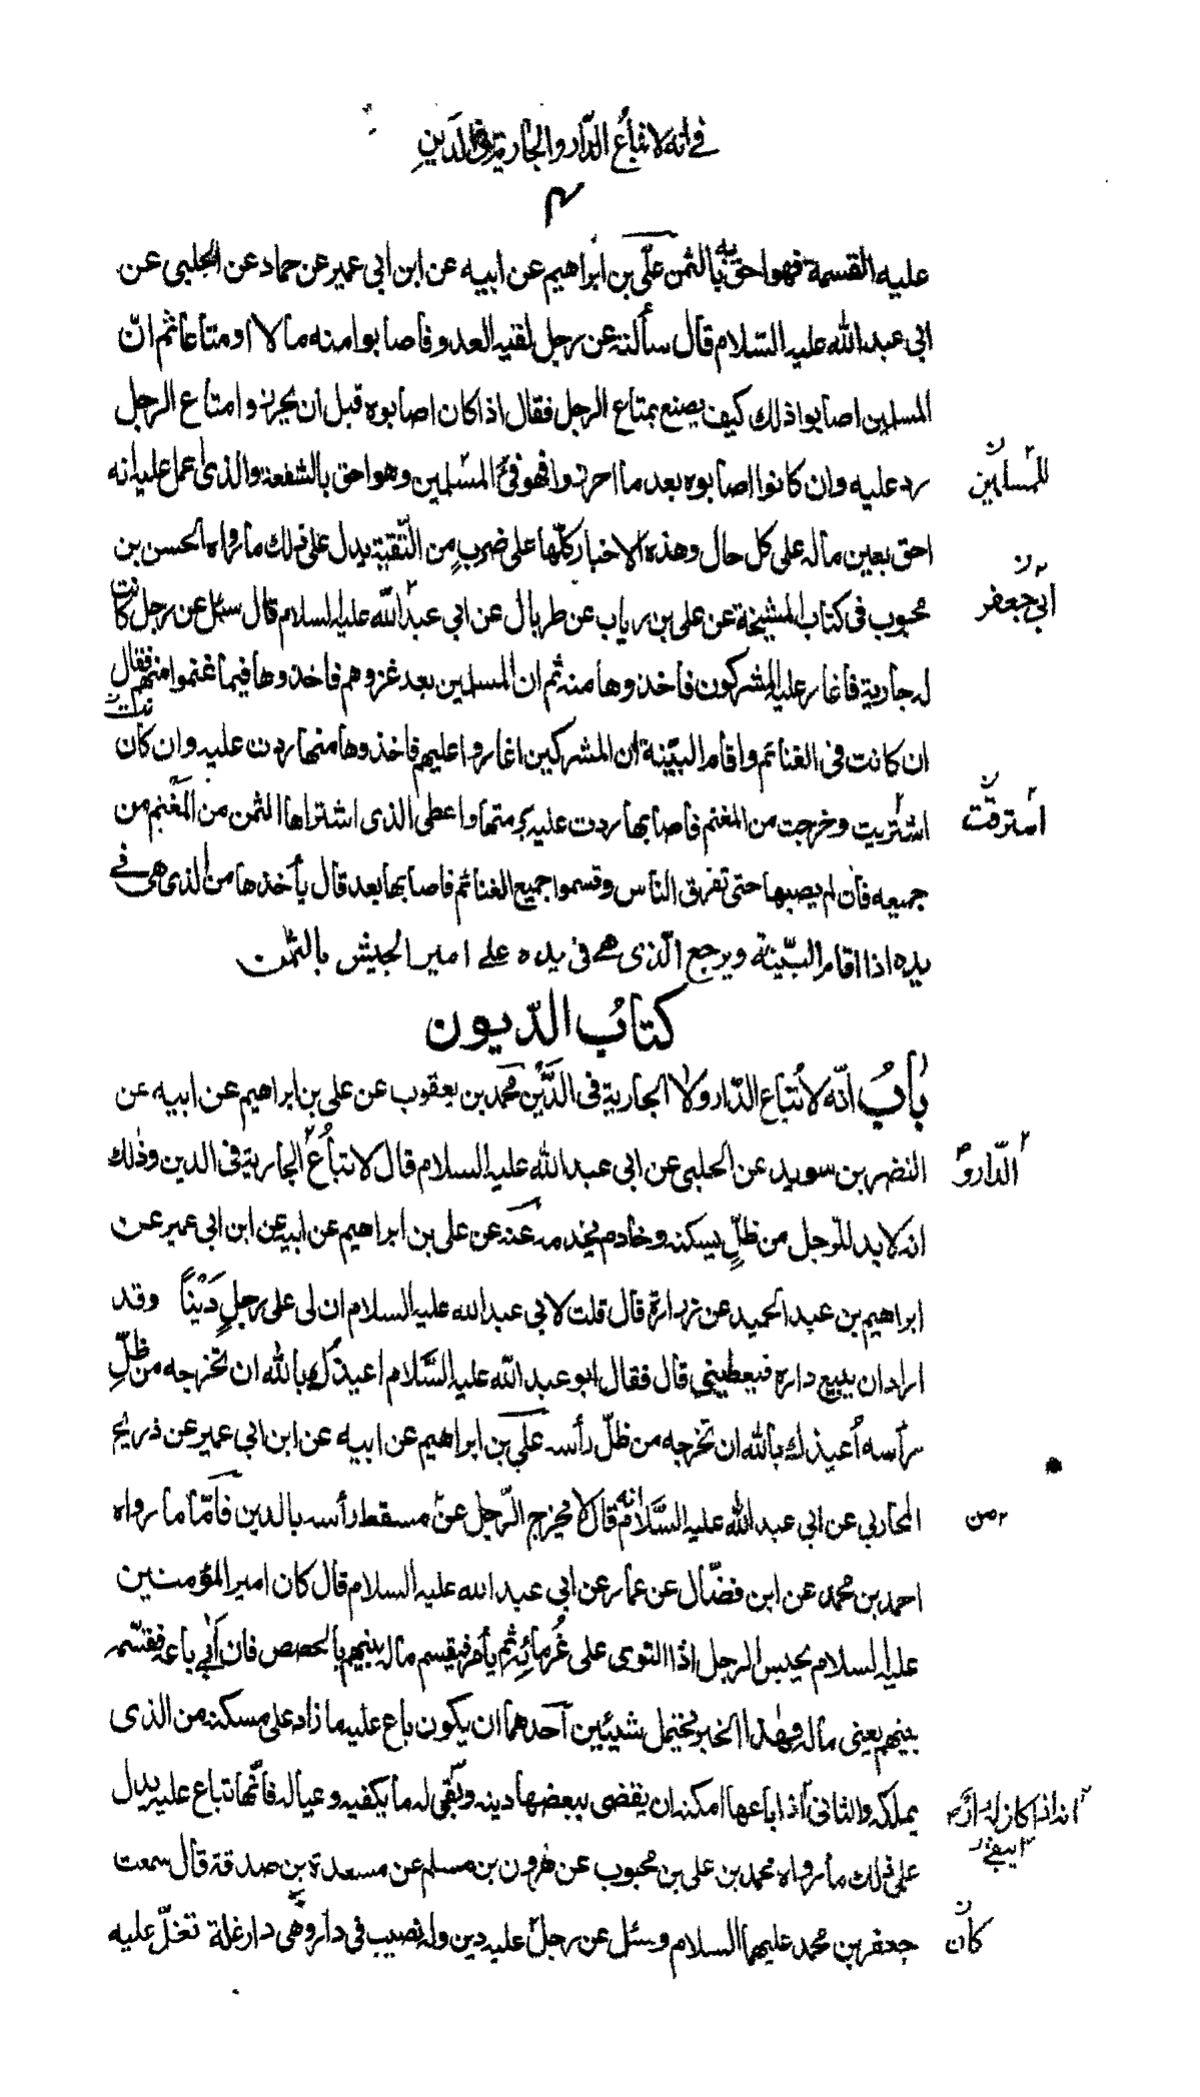 في انه لا تباع الدار والجارية في الدين
٣
عليه القسمة فهو احق به بالثمن علي بن ابراهيم عن ابيه عن ابن ابي عمير عن حماد عن الحلبي عن
ابي عبد الله عليه السلام قال سألته عن رجل لقيه العدو فاصابوا منه مالا او متاعا ثم انّ
المسلمين اصابوا ذلك كيف يصنع بمتاع الرجل فقال اذا كان اصابوه قبل ان يحرزوا متاع الرجل
رد عليه وان كانوا اصابوه بعد ما احرزوا فهو فئ المسلمين وهو احق بالشفعة والذي اعمل عليه انه
للمسلمين ن
احق بعين ماله على كل حال وهذه الاخبار كلّها على ضربٍ من التّقيّة يدل على ذلك ما رواه الحسن بن
محبوب في كتاب المشيخة عن علي بن رياب عن طربال عن ابي عبد الله عليه السلام قال سئل عن رجل كانت
ابي جعفر ن
له جارية فاغار عليه المشركون فاخذوها منه ثم ان المسلمين بعد غزوهم فاخذوها فيما غنموا منهم فقال
ان كانت في الغنائم واقام البيّنة ان المشركين اغاروا عليهم فاخذوها منها ردت عليه وان كان
اشتريت وخرجت من المغنم فاصابها ردت عليه برمتها واعطى الذي اشتراها الثمن من المغنم من
استرقّت ن
جميعه فان لم يصبها حتى تفرق الناس وقسموا جميع الغنائم فاصابها بعد قال يأخذها من الذي هي في
يده اذا اقام البيّنة ويرجع الّذي هي في يده على امير الجيش بالثمن
كتابُ الدّيون
بابُ انّه لا تُباع الدّار ولا الجارية في الدَّيْن محمد بن يعقوب عن علي بن ابراهيم عن ابيه عن
النضر بن سويد عن الحلبي عن ابي عبد الله عليه السلام قال لا تباعُ الجارية في الدين وذلك
الدّار و
انه لا بد للرّجل من ظلّ يسكنه وخادم يخدمه عنه عن علي بن ابراهيم عن ابيه عن ابن ابي عمير عن
ابراهيم بن عبد الحميد عن زرارة قال قلت لابي عبد الله عليه السلام ان لي على رجلٍ دَيْناً وقد
اراد ان يبيع داره فيعطيني قال فقال ابو عبد اللّه عليه السَّلام اعيذك بالله ان تخرجه من ظلّ
رأسه أُعيذك بالله ان تخرجه من ظلّ رأسه علي بن ابراهيم عن ابيه عن ابن ابي عمير عن ذريح
المحاربي عن ابي عبد اللّه عليه السَّلام انه قال لا يخرج الرّجل عن مسقط رأسه بالدين فامّا ما رواه
من
احمد بن محمد عن ابن فضّال عن عمار عن ابي عبد الله عليه السلام قال كان امير المؤمنين
عليه السلام يحبس الرجل اذا التوى على غُرمائِه ثم يأمر فيقسم ماله بينهم بالحصص فان أبى باعه فقسّمه
بينهم يعني ماله فهذا الخبر يحتمل شيئين آحدهما ان يكون باع عليه ما زاد على مسكنه من الذي
يملكه والثاني اذا باعها امكنه ان يقضي ببعضها دينه ويبقى له ما يكفيه وعياله فانّها تباع عليه يدل
انه اذا كان له دار
يبقى
على ذلك ما رواه محمد بن علي بن محبوب عن هرون بن مسلم عن مسعدة بن صدقة قال سمعت
جعفر بن محمد عليهما السلام وسئل عن رجل عليه دين وله نصيب في دار وهي دار غلة تغلّ عليه
كان ن